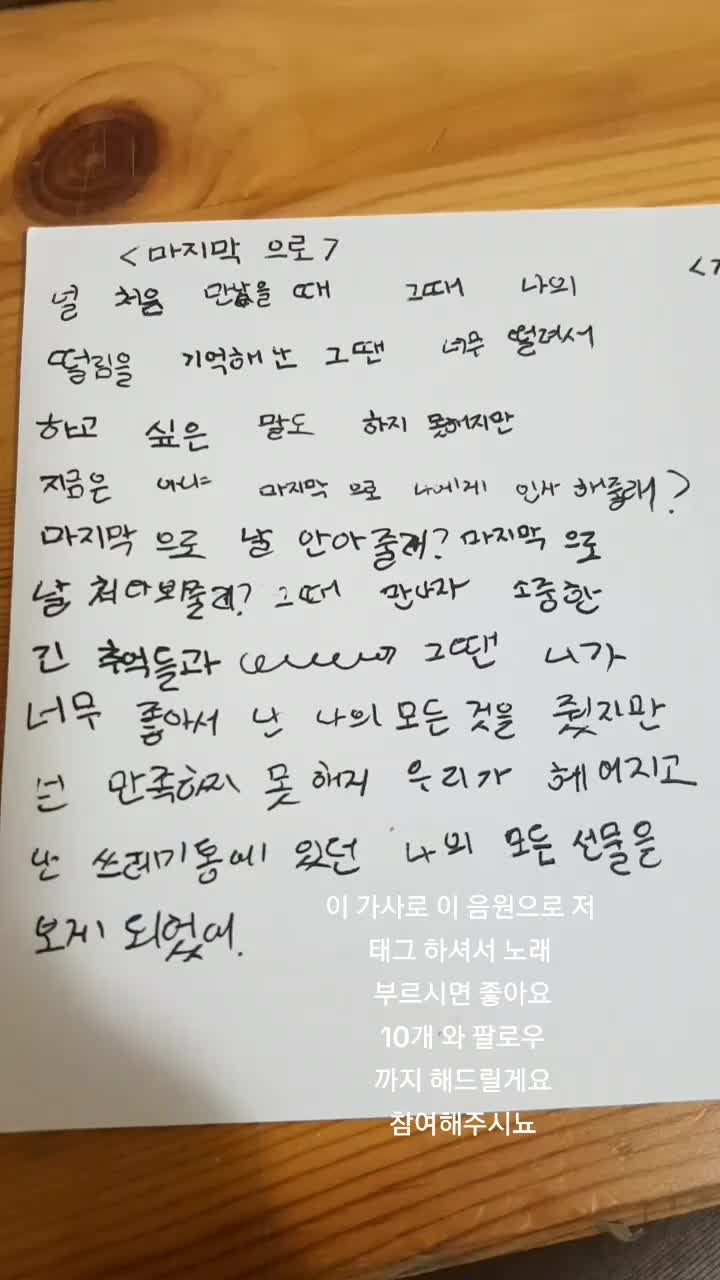 <마지막 으로>
널 처음 만났을 때 그때 나의
떨림을 기억해 난 그땐 너무 떨려서
하고 싶은 말도 하지 못해지만
지금은 아냐 마지막 으로 나에게 인사 해줄래?
마지막 으로 날 안아줄래? 마지막 으로
날 쳐다봐줄래? 그때 만나자 소중한
긴 추억들과 그땐 니가
너무 좋아서 난 나의 모든 것을 줬지만
넌 만족하지 못 해지 우리가 헤어지고
난 쓰레기통에 있던 나의 모든 선물을
보게 되었어.
이 가사로 이 음원으로 저
태그 하셔서 노래
부르시면 좋아요
10개 와 팔로우
까지 해드릴게요
참여해주시뇨